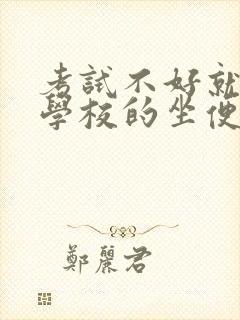 考試不好就
學校的坐便
鄭麗君